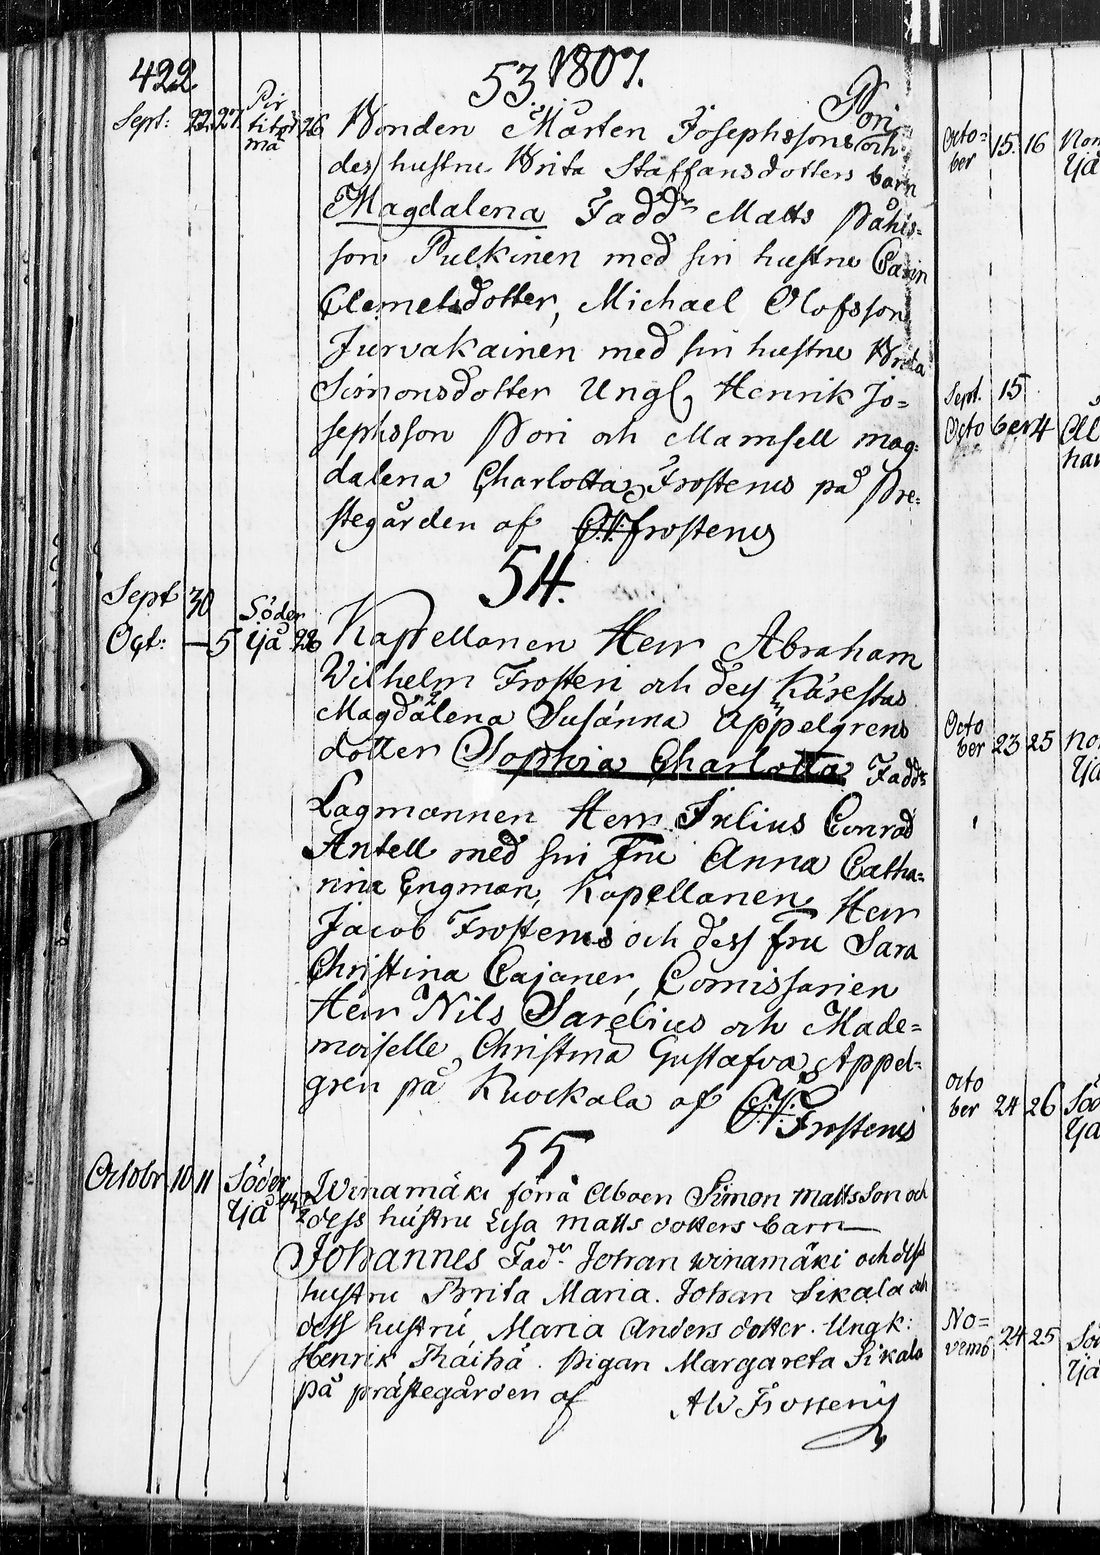 422
53. 1807.
Sept: 22. 27. Pir
titö
mä 26
Pori
Bonden Mårten Josephssons och
dess hustru Brita Staffansdotters barn
Magdalena Fadd:r Matts Påhls=
son Pulkinen med sin hustru Carin
Clemetsdotter, Michael Olofsson
Jurvakainen med sin hustru Brita
Simonsdotter Ungl. Henrik Jo=
sephsson Pori och Mamsell Mag=
dalena Charlotta Frostenus på Pre=
stegården af A:W: Frostenus
54.
Sept 30
Oct: — 5 Söder
Ijå 28
Kapellanen Herr Abraham
Wilhelm Frosten och dess Kärestas
Magdalena Susanna Appelgrens
dotter Sophia Charlotta Fadd:r
Lagmannen Herr Julius Conrad
Antell med sin Fru Anna Catha=
rina Engman, Kapellanen Herr
Jacob Frostenus och dess Fru Sara
Christina Cajaner, Comissarien
Herr Nils Sarelius och Made=
moiselle Christina Gustafva Appel=
gren på Kuockala af A:W: Frostenus
55.
Octobr 10 11 Söder
Ijå
Winamäki förra Åboen Simon Mattsson och
dess hustru Lisa Matts dotters barn
Johannes Fad:r Johan Winamäki och dess
hustru Brita Maria. Johan Sikala och
dess hustru Maria Anders dotter. Ungk:
Henrik Pigan Margareta Sikala
på prästegården af AW Frostenus
Octo=
ber 15. 16
Ijå
Sept. 15
Octo ber 4
Octo
ber 23 25
Ijå
octo
ber 24 26
Ijå
No=
vemb 24 25
Ijå